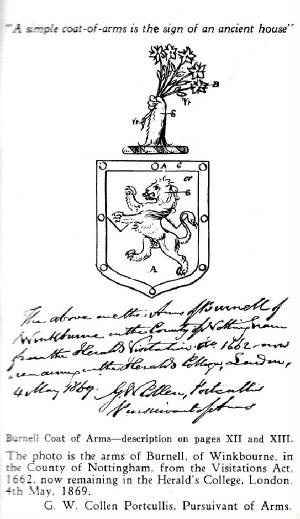 "A simple coat-of-arms is the sign of an ancient house"
B
G
A G
or
G
A
The above are the Arms of Burnell of
Winkbourne in the County of Nottingham
from the Heralds Visitation 1662 now
remaining in the Heralds College, London,
4 May 1869. G W Collen, Portcullis
Pursuivant of Arms
Burnell Coat of Arms—description on pages XII and XIII.
The photo is the arms of Burnell, of Winkbourne, in
the County of Nottingham, from the Visitations Act,
1662, now remaining in the Herald's College, London.
4th May, 1869.
G. W. Collen Portcullis, Pursuivant of Arms.